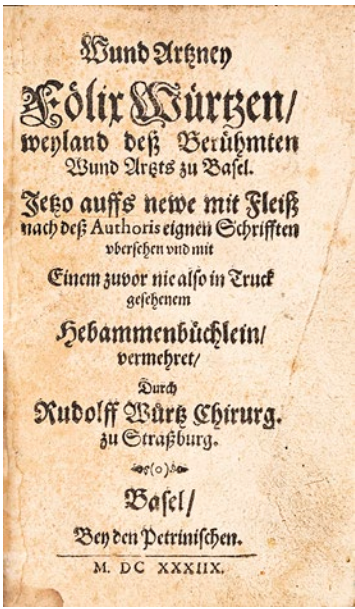 Wund Artzney
Fölix Würtzen/
weyland deß Berühmten
Wund Artzts zu Basel.
Jetzo auffs newe mit Fleiß
nach deß Authoris eignen Schrifften
vbersehen vnd mit
Einem zuvor nie also in Truck
gesehenem
Hebammenbüchlein/
vermehret/
Durch
Rudolff Würtz Chirurg.
zu Straßburg.
(o)
Basel/
Bey den Petrinischen.
M. DC XXXIIX.